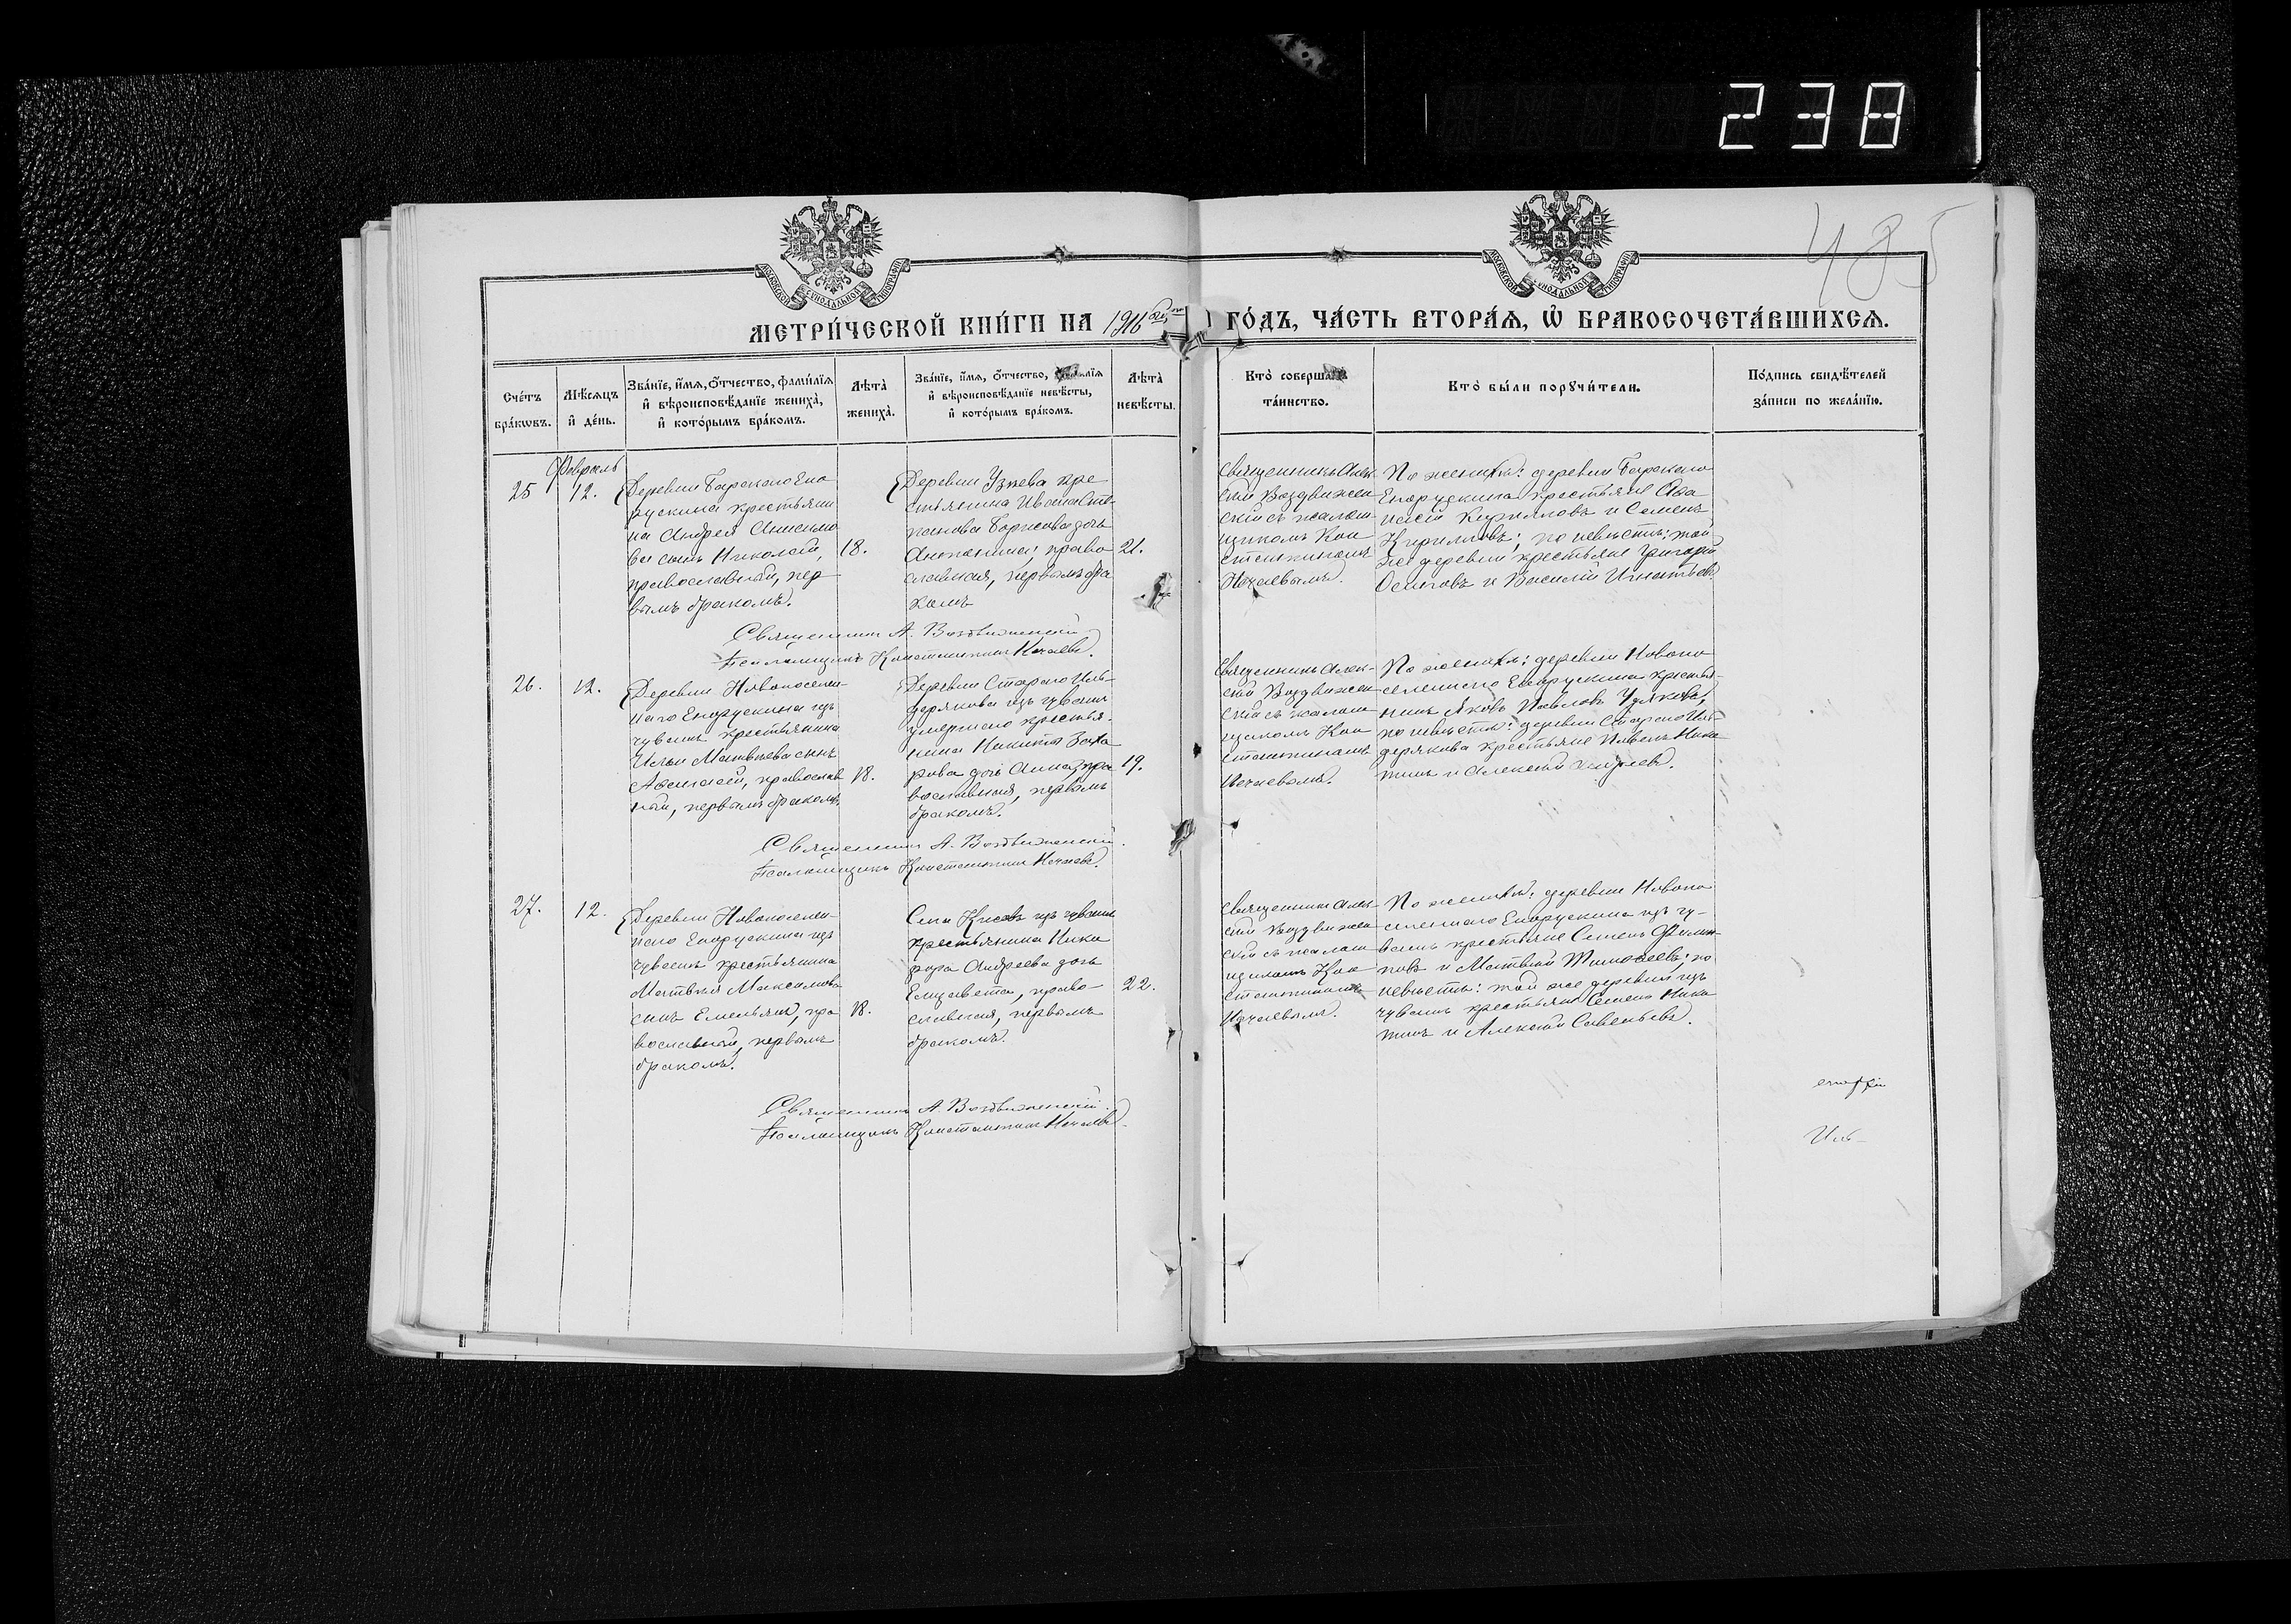 238
485
МОСКОВСКОЙ СѴНОДАЛЬНОЙ ТИПОГРАФІИ
МОСКОВСКОЙ СѴНОДАЛЬНОЙ ТИПОГРАФІИ
МЕТРИ́ЧЕСКОЙ КНИ́ГИ НА 1916 ГО́ДЪ, ЧА́СТЬ ВТОРА́Я, Ѡ҆ БРАКОСОЧЕТА́ВШИХСЯ.
Сче́тъ
бра́кѡвъ.
Мѣ́сяцъ
и҆ де́нь.
Зва́нїе, и҆́мя, ѻ҆́тчество, фами́лїя
и҆ вѣроисповѣ́данїе жениха̀,
и҆ кото́рымъ бра́комъ.
Лѣта̀
жениха̀.
Зва́нїе, и҆́мя, ѻ҆́тчество,
и҆ вѣроисповѣ́данїе невѣ́сты,
и҆ кото́рымъ бра́комъ.
Лѣта̀
невѣ́сты.
Кто̀ соверша́лъ
та́инство.
Кто̀ бы́ли порꙋчи́тели.
По́дпись свидѣ́телей
за́писи по жела́нїю.
25
Февраль
12.
Деревни Барскаго Ена
рускина крестьяни
на Андрея Анисимо
ва сынъ Николай,
православный, пер
вымъ бракомъ.
18.
Деревни Узеева кре
стьянина Ивана Сте
панова Борисова дочь
православная, первымъ бра
комъ
21.
Священникъ Алек
сій Воздвижен
скій съ псалом
щикомъ Кон
стантиномъ
Нечаевымъ.
По женихѣ: деревни Барскаго
Енорускина крестьяне Аѳа
насій Кирилловъ и Семенъ
Кирилловъ; по невѣстѣ: той
же деревни крестьяне Григорій
Осиповъ и Василій Игнатьевъ.
Священникъ А. Воздвиженскій
Псаломщикъ Константинъ Нечаевъ.
26.
12.
Деревни Новопоселен-
наго Енорускина изъ
чувашъ крестьянина
Ильи Матвѣева сынъ
Аѳанасій, православ
ный, первымъ бракомъ.
18.
Деревни Стараго Иль-
дерякова изъ чувашъ
умершаго крестья-
нина Никиты Заха
рова дочь Анна, пра
вославная, первымъ
бракомъ.
19.
Священникъ Алек-
сій Воздвижен
скій съ псалом
щикомъ Кон
стантиномъ
Нечаевымъ.
По женихѣ: деревни Новопо
селеннаго Енорускина крестья-
нинъ Яковъ Павловъ
по невѣстѣ: деревни Стараго Иль-
дерякова крестьяне Павелъ Ники
тинъ и Алексѣй Андреевъ.
Священникъ А. Воздвиженскій.
Псаломщикъ Константинъ Нечаевъ.
27.
12.
Деревни Новопоселен-
наго Енорускина изъ
чувашъ крестьянина
Матвѣя Максимова
сынъ Емельянъ, пра
вославный, первымъ
бракомъ.
18.
Села изъ чувашъ
крестьянина Ники
фора Андреева дочь
Елизавета, право-
славная, первымъ
бракомъ.
22.
Священникъ Алек
сій Воздвижен
скій съ псалом
щикомъ Кон
стантиномъ
Нечаевымъ.
По женихѣ: деревни Новопо
селеннаго Енорускина изъ чу-
вашъ крестьяне Семенъ Филип-
повъ и Матвѣй Тимоѳеевъ; по
невѣстѣ: той же деревни изъ
чувашъ крестьяне Семенъ Ники
тинъ и Алексѣй Савельевъ.
Священникъ А. Воздвиженскій.
Псаломщикъ Константинъ Нечаевъ.
Иль-